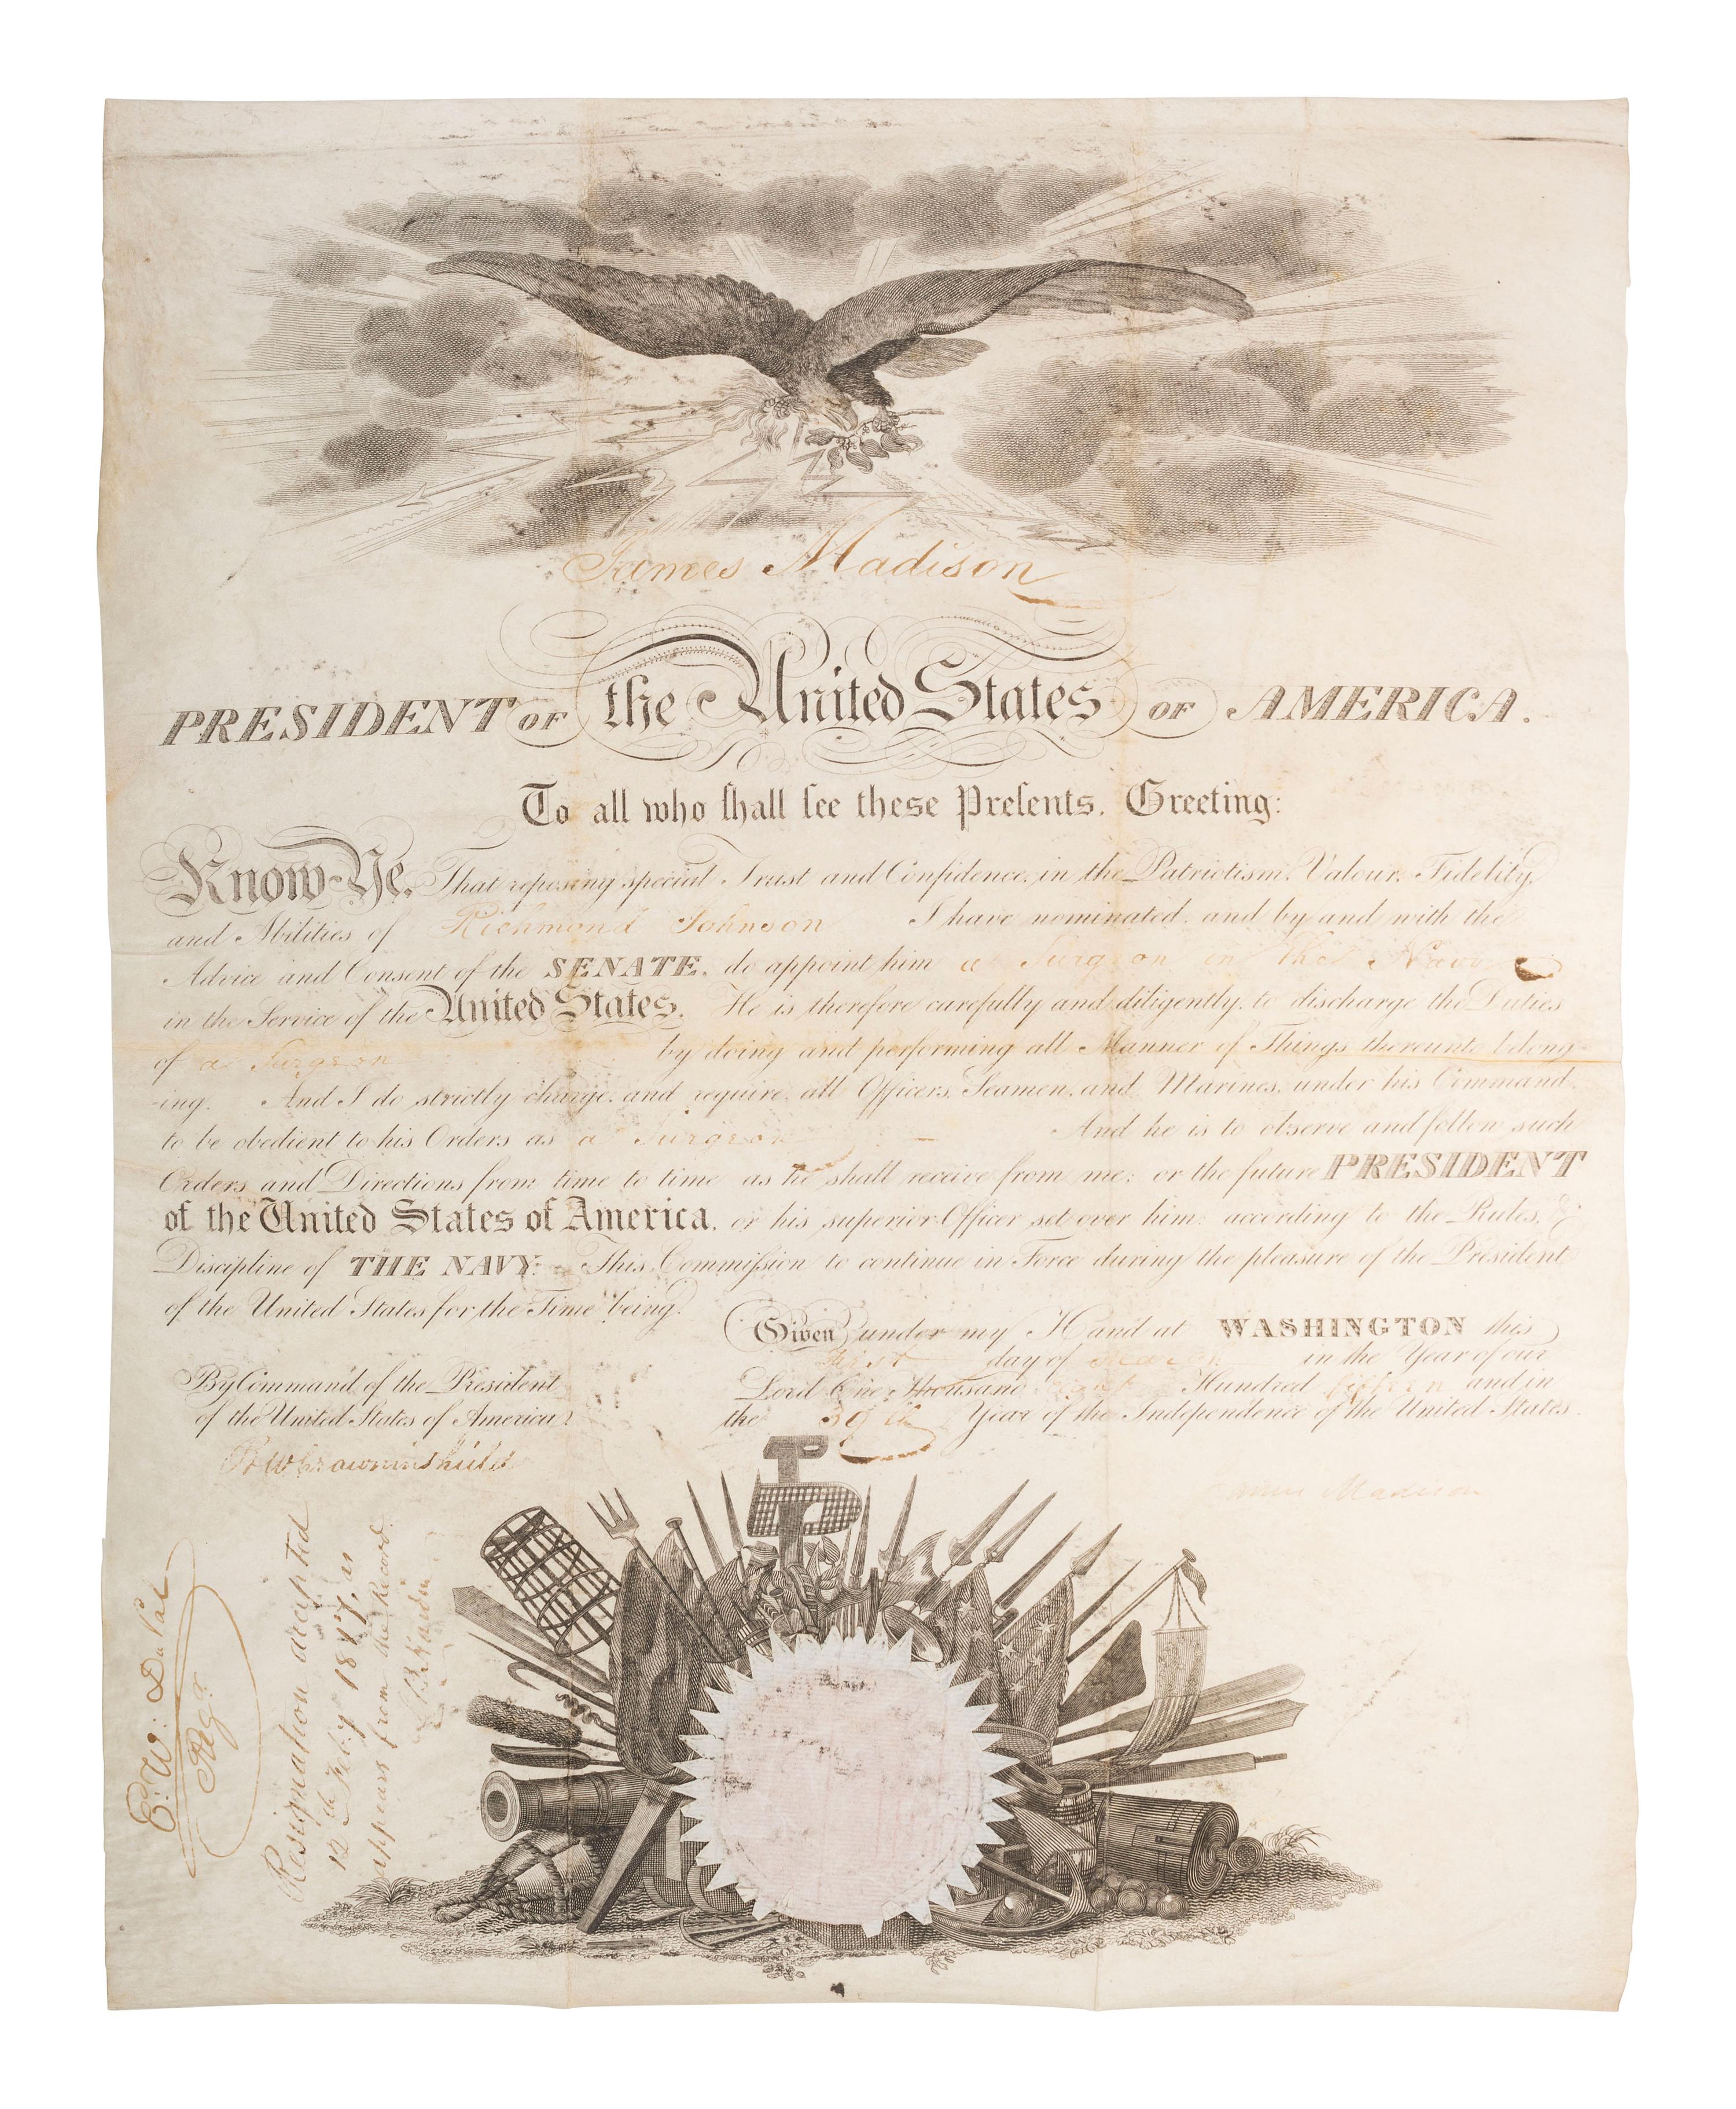 James Madison
PRESIDENT OF the United States OF AMERICA.
To all who ſhall ſee these Preſents, Greeting:
Know Ye, That reposing special Trust and Confidence, in the Patriotism, Valour, Fidelity,
and Abilities of Richmond Johnson I have nominated, and by and with the
Advice and Consent of the SENATE, do appoint him a Surgeon in the Navy
in the Service of the United States. He is therefore carefully and diligently, to discharge the Duties
of a Surgeon by doing and performing all Manner of Things thereunto belong-
-ing. And I do strictly charge, and require, all Officers, Seamen, and Marines, under his Command,
to be obedient to his Orders as a Surgeon - And he is to observe and follow such
Orders and Directions from time to time as he shall receive from me; or the future PRESIDENT
of the United States of America, or his superior Officer set over him; according to the Rules, &
Discipline of THE NAVY: This Commiſsion to continue in Force during the pleasure of the President
of the United States for the Time being.
Given under my Hand at WASHINGTON this
First day of March in the Year of our
Lord One Thousand eight Hundred fifteen and in
the 39th Year of the Independence of the United States.
By Command of the President
of the United States of America
BWCrowninshield
James Madison
E. W. DuVal
Reg.
Resignation accepted
12th Feb.y 1817, as
appears from the Record.